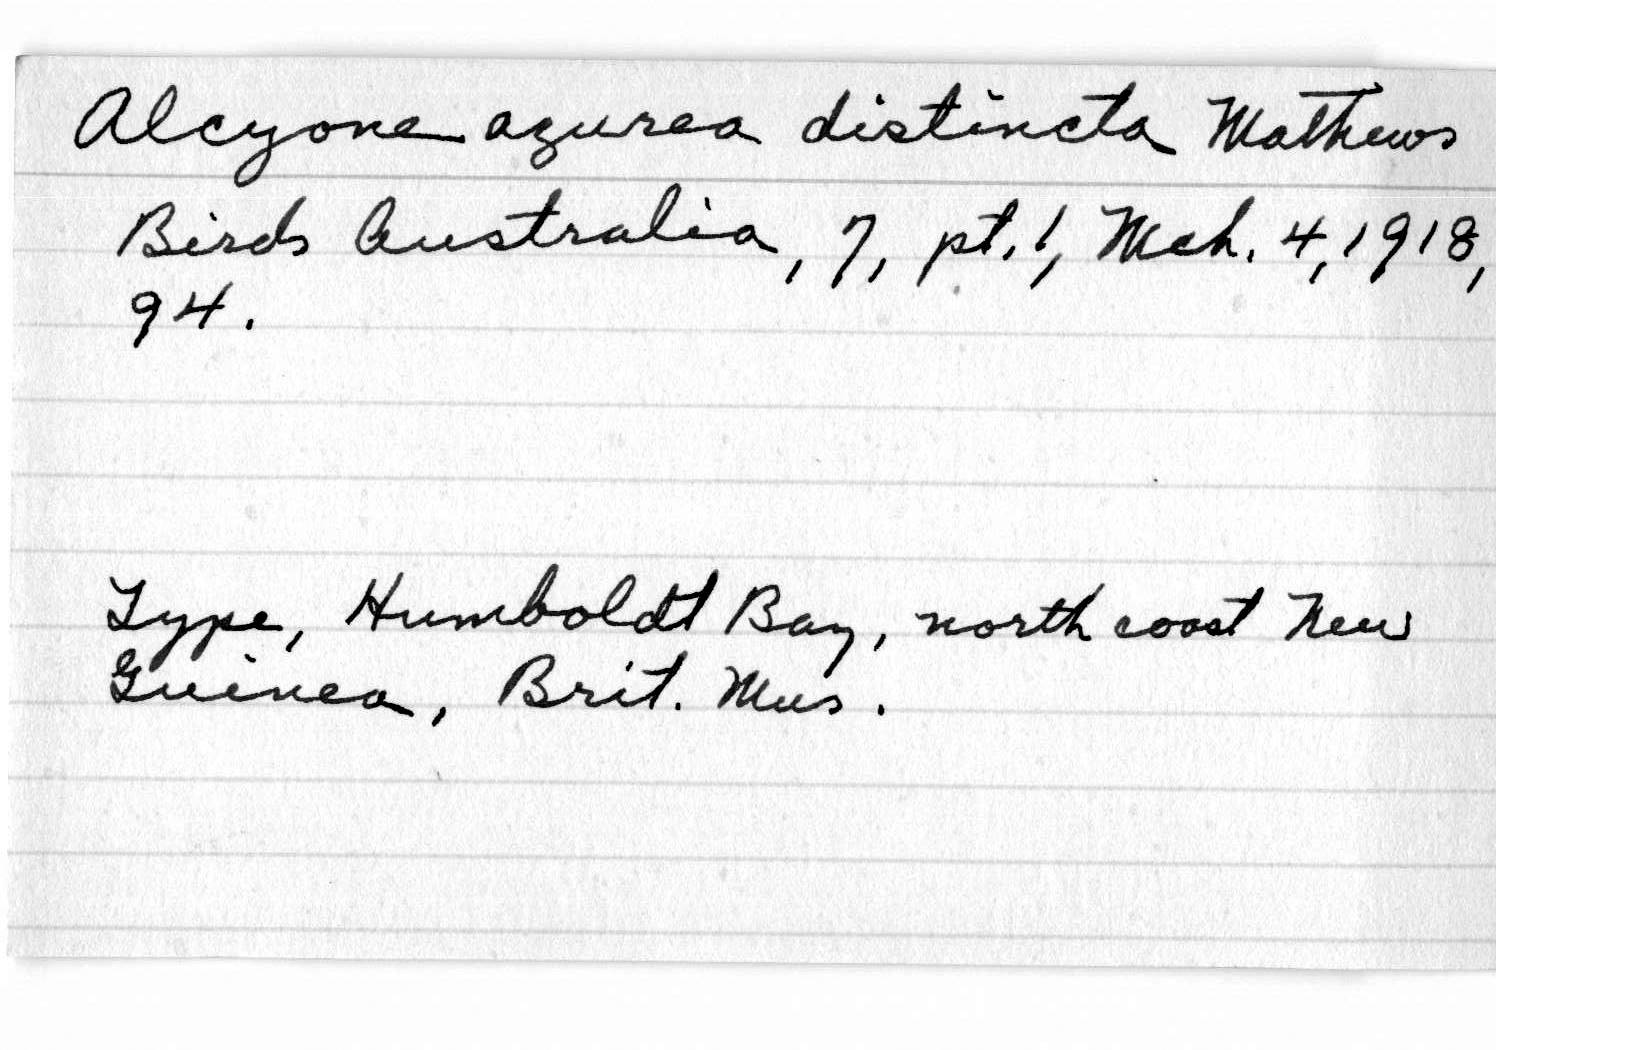 Alcyone azurea distincta Mathews
Birds Australia, 7, pt. 1, Mch. 4, 1918,
94.
Type, Humboldt Bay, north coast New
Guinea, Brit. Mus.